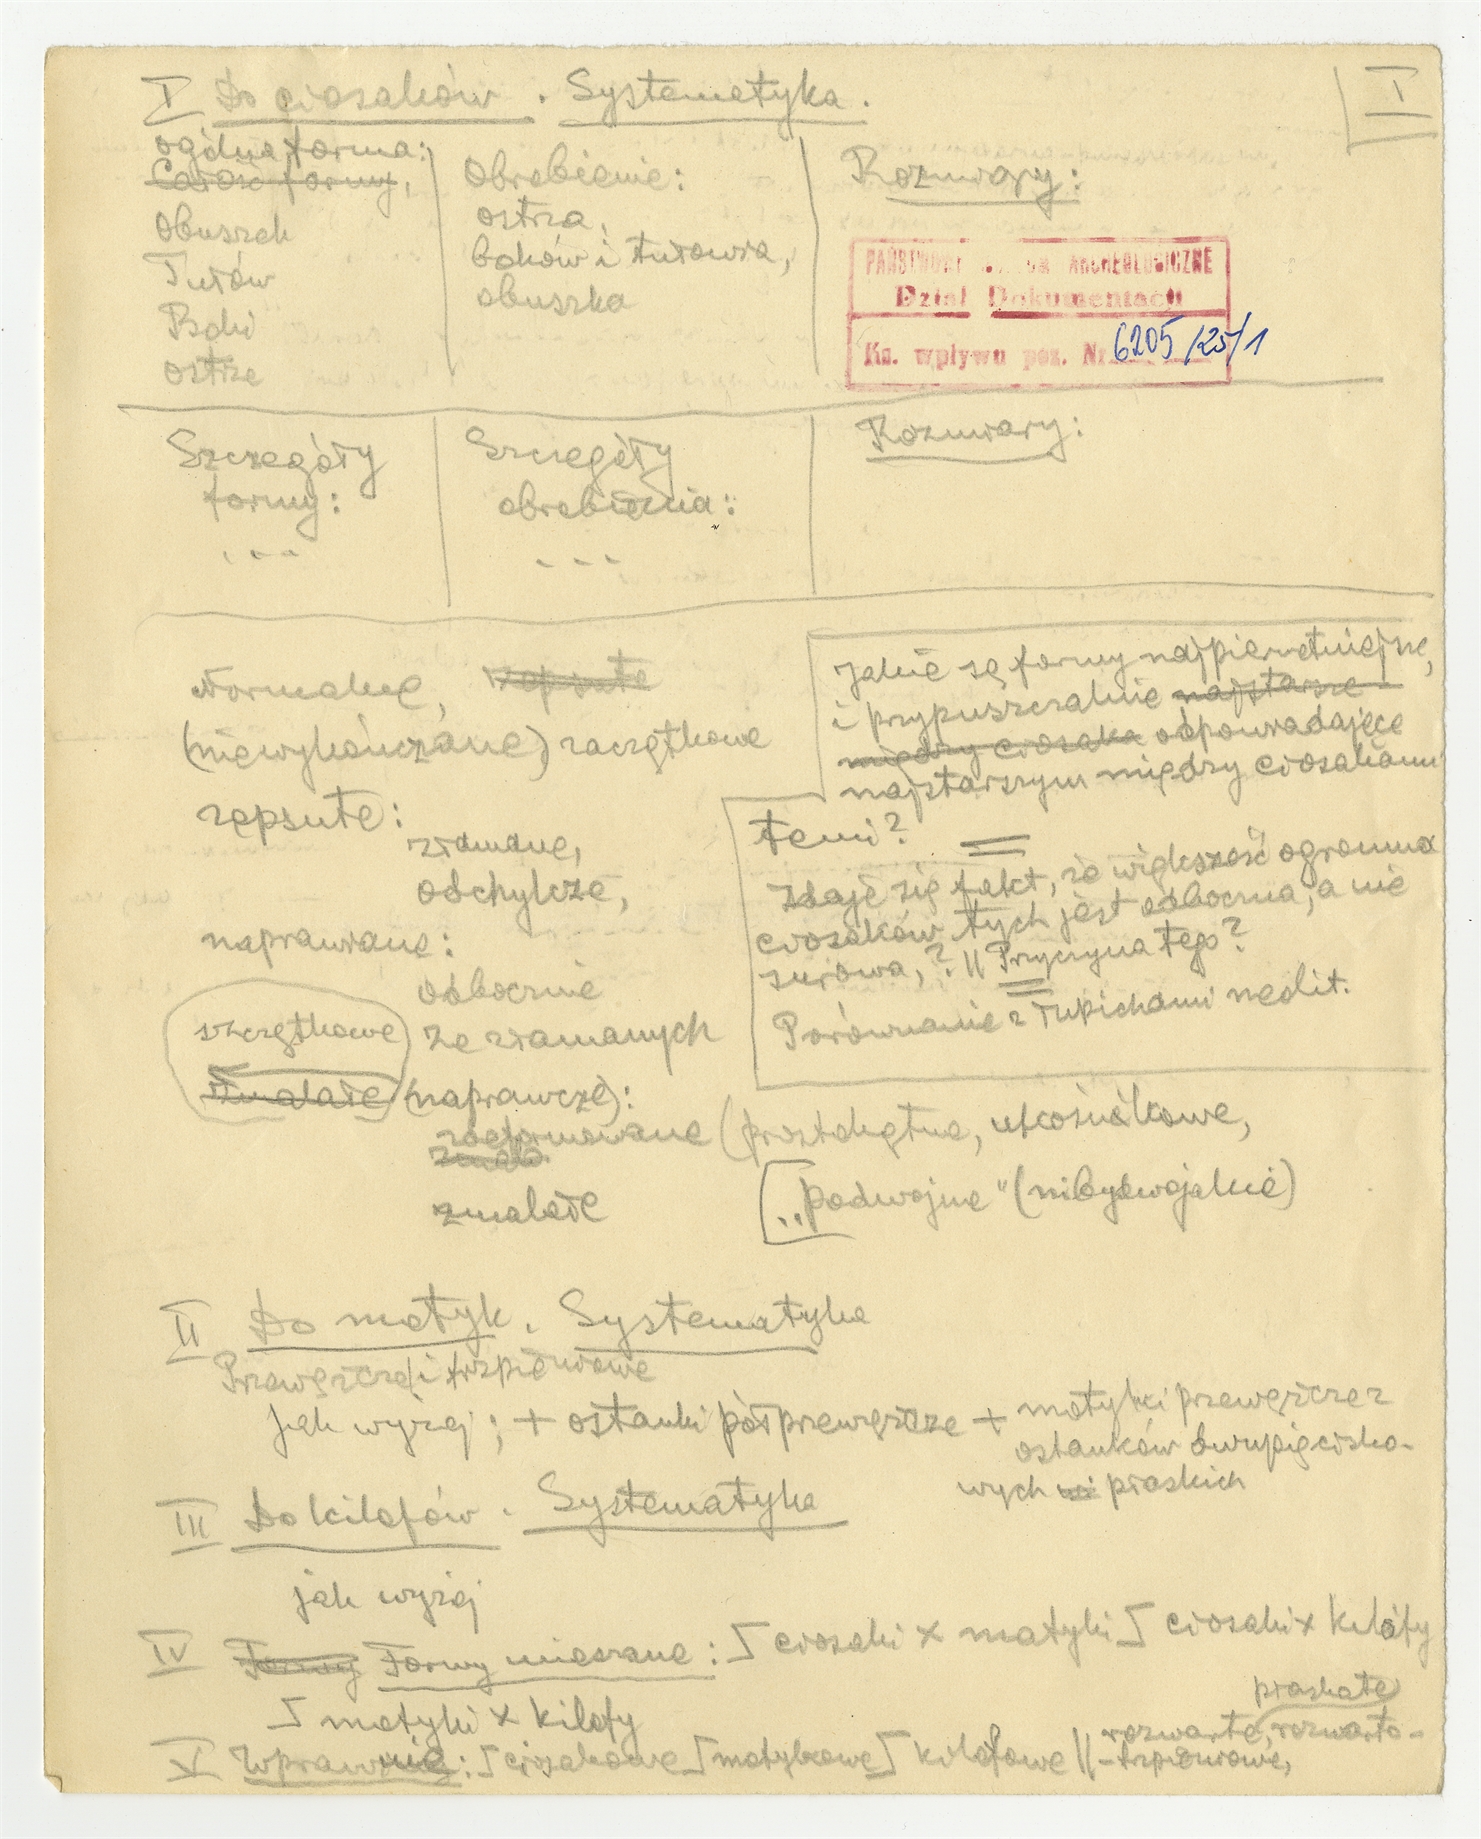 I Do ciosaków. Systematyka.
I
ogólna forma:
Całość formy,
obuszek
Tułów
Boki
ostrze
Obrobienie:
ostrza,
boków i tułowia,
obuszka
Rozmiary:
PAŃSTWOWE ARCHEOLOGICZNE
Dział Dokumentacji
Ks. wpływu poz. Nr 6205/25/1
Szczegóły
formy:
. . .
Szczegóły
obrobienia:
. . .
Rozmiary:
Normalne, zepsute
(niewykończone) zaczątkowe
zepsute:
złamane,
odchylcze,
naprawiane:
odbocznie
szczątkowe ze złamanych
zmalałe (naprawcze):
zdeformowane (prostokątne, ukośnikowe,
zmalałe
["podwojne" (nibydwojakie)
Jakie są formy najpierwotniejsze,
i przypuszczalnie najstarsze
między ciosaka odpowiadające
najstarszym między ciosakami
temi?
Zdaje się fakt, że większość ogromna
ciosaków tych jest odboczna, a nie
surowa,? || Przyczyna tego?
Porównanie z łupichami neolit.
II Do motyk. Systematyka
Przewęzcze i trzpieniowe
jak wyżej; + ostanki półprzewęzcze + motyki przewęzcze z
ostanków dwupięcisko-
wych płaskich
III Do kilofów. Systematyka
jak wyżej
IV Formy Formy mieszane: ciosaki x motyki ciosaki x kilofy
motyki x kilofy
płaskate
V Wprawnie: ciosakowe motykowe kilofowe || rozwarte, rozwarto-
-trzpieniowe,